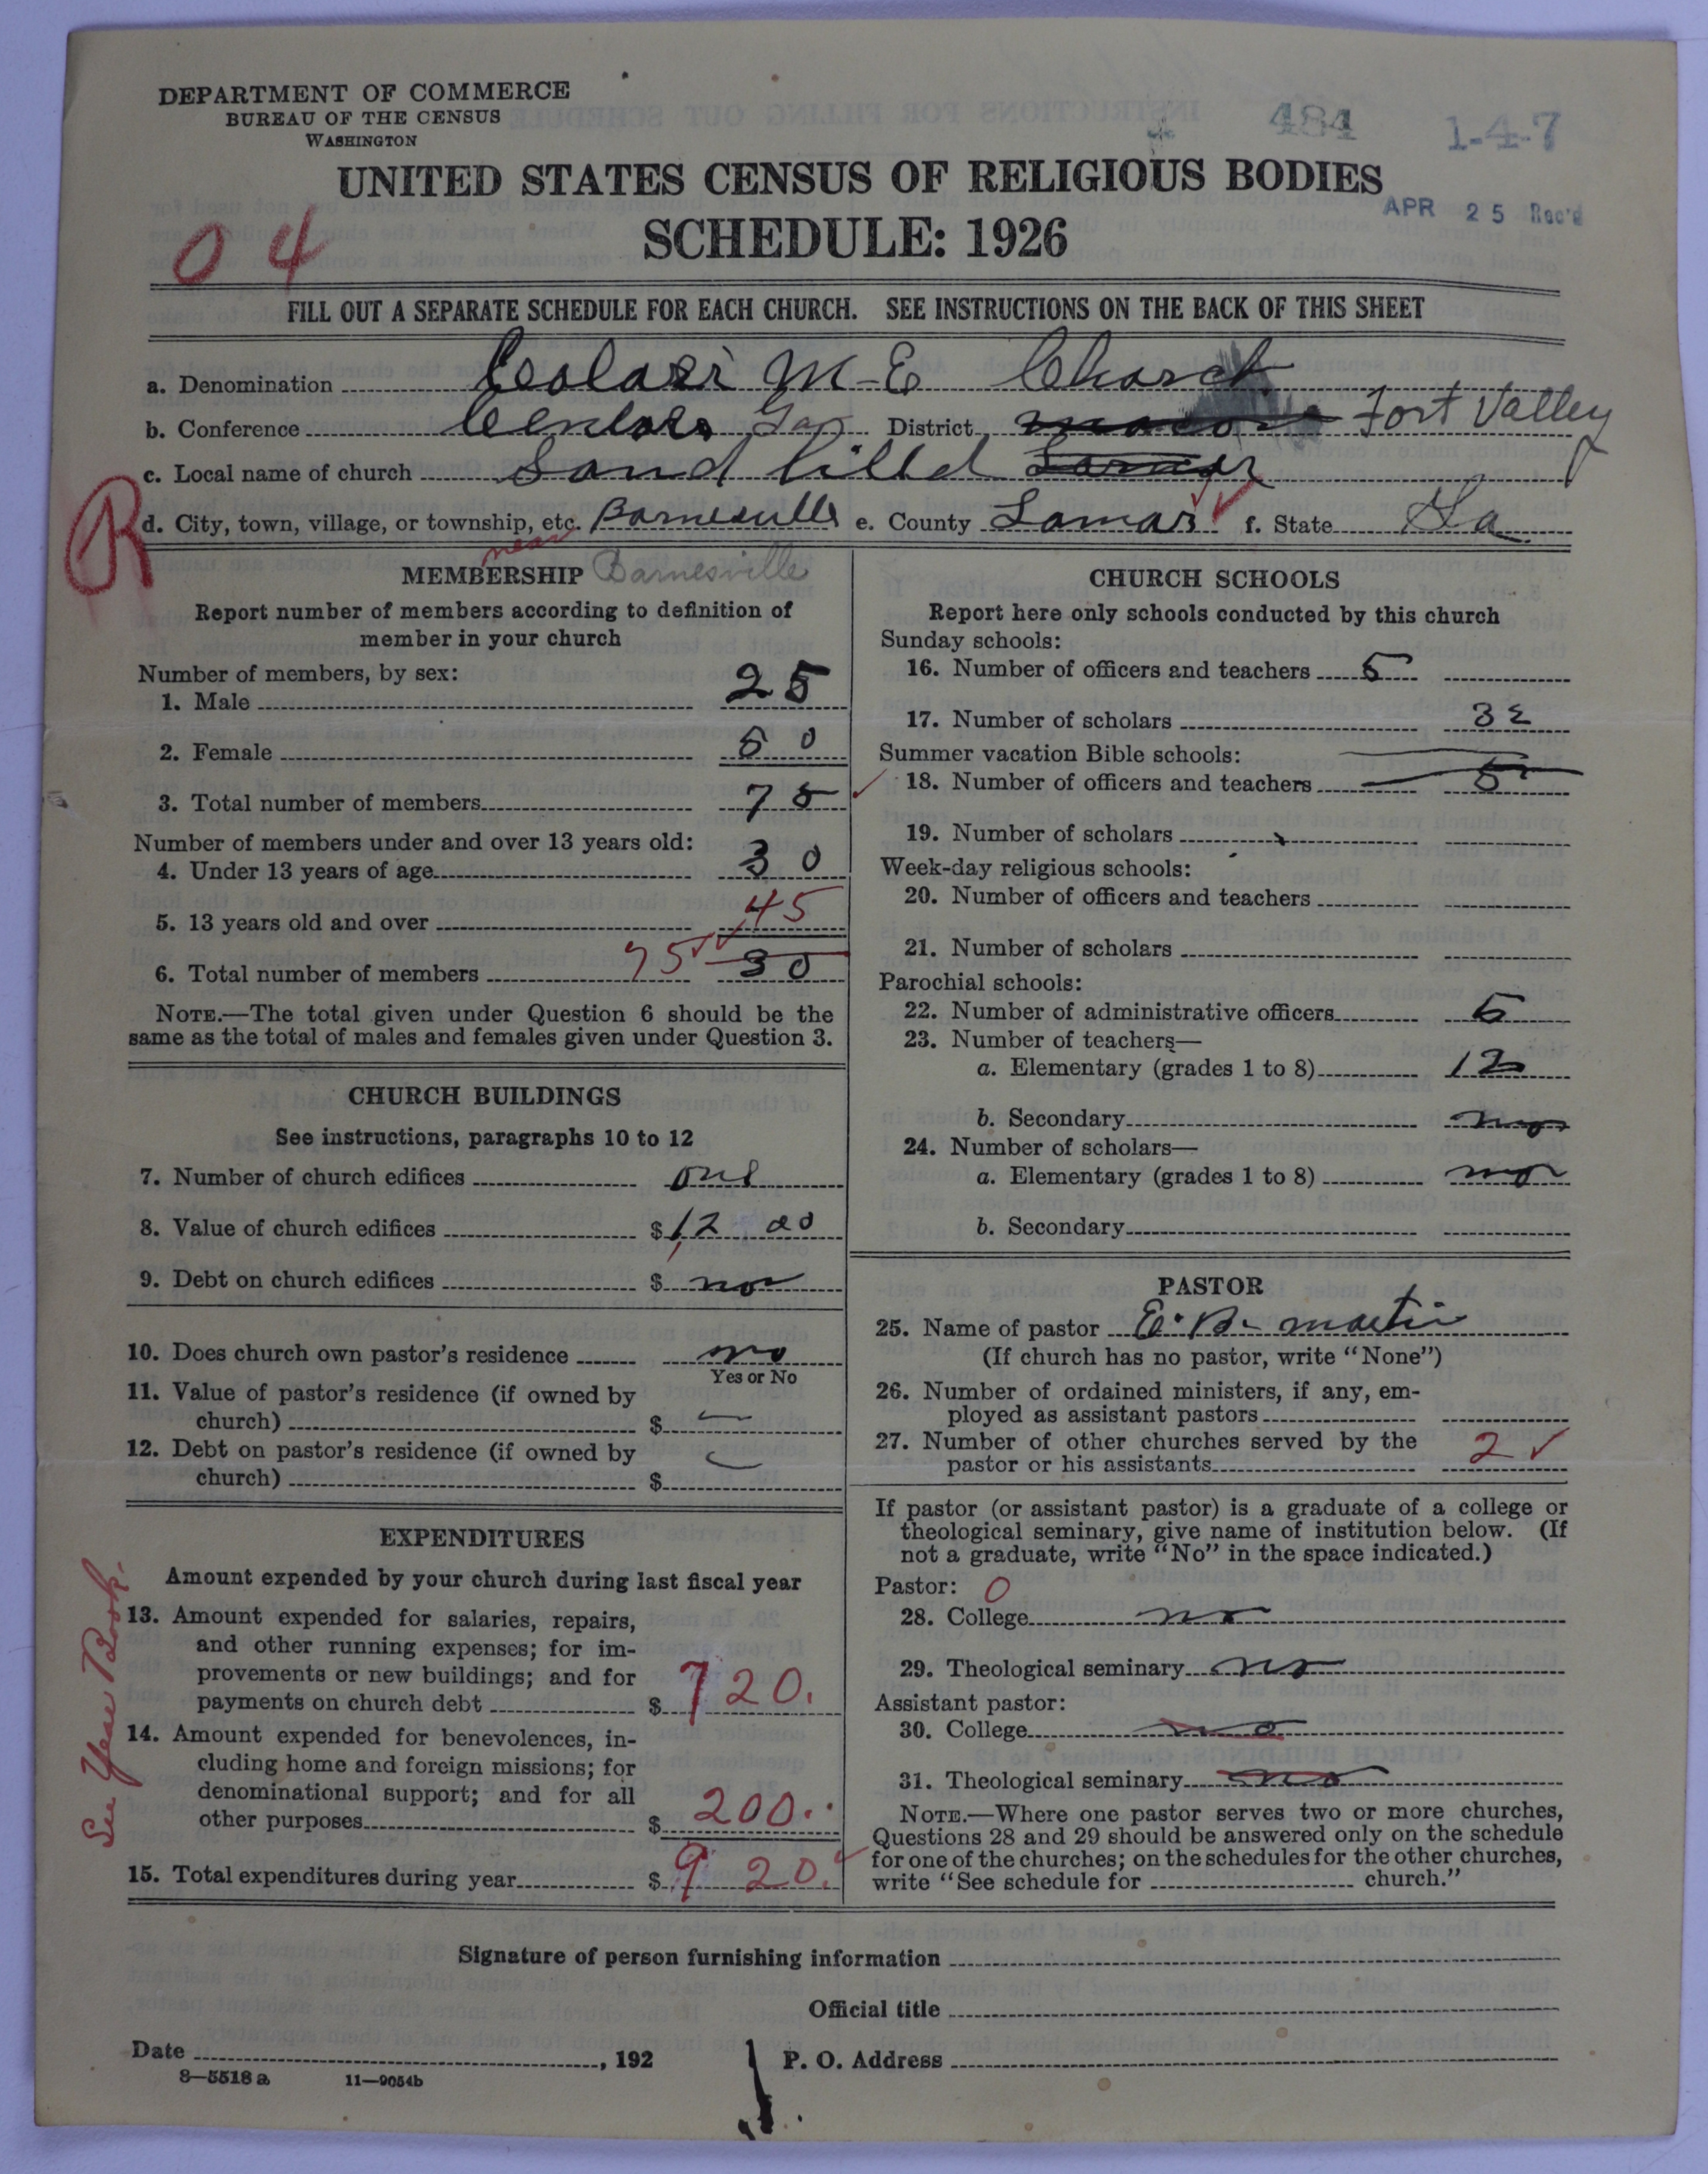 DEPARTMENT OF COMMERCE
BUREAU OF THE CENSUS
WASHINGTON
484
1-4-7
UNITED STATES CENSUS OF RELIGIOUS BODIES
SCHEDULE: 1926
APR 25 Rec'd
04
FILL OUT A SEPARATE SCHEDULE FOR EACH CHURCH. SEE INSTRUCTIONS ON THE BACK OF THIS SHEET
a. Denomination M-E Church
b. Conference Ga District Macon Fort Valley
c. Local name of church Sand Lamar
R
d. City, town, village, or township, etc. Barnesville e. County Lamar f. State Ga
near
MEMBERSHIP Barnesville
Report number of members according to definition of
member in your church
Number of members, by sex:
1. Male 25
2. Female 50
3. Total number of members 75
Number of members under and over 13 years old:
4. Under 13 years of age 30
5. 13 years old and over 45
6. Total number of members 75 30
NOTE.—The total given under Question 6 should be the
same as the total of males and females given under Question 3.
CHURCH BUILDINGS
See instructions, paragraphs 10 to 12
7. Number of church edifices one
8. Value of church edifices $12 00
9. Debt on church edifices $ no
10. Does church own pastor's residence no
Yes or No
11. Value of pastor's residence (if owned by
church) $ —
12. Debt on pastor's residence (if owned by
church) $
EXPENDITURES
Amount expended by your church during last fiscal year
13. Amount expended for salaries, repairs,
and other running expenses; for im-
provements or new buildings; and for
payments on church debt $ 720.
14. Amount expended for benevolences, in-
cluding home and foreign missions; for
denominational support; and for all
other purposes $ 200.
15. Total expenditures during year $ 920.
See Year Book.
CHURCH SCHOOLS
Report here only schools conducted by this church
Sunday schools:
16. Number of officers and teachers 5
17. Number of scholars
Summer vacation Bible schools:
18. Number of officers and teachers 5
19. Number of scholars
Week-day religious schools:
20. Number of officers and teachers
21. Number of scholars
Parochial schools:
22. Number of administrative officers 5
23. Number of teachers—
a. Elementary (grades 1 to 8) 12
b. Secondary no
24. Number of scholars—
a. Elementary (grades 1 to 8) no
b. Secondary
PASTOR
25. Name of pastor E. B. Martin
(If church has no pastor, write "None")
26. Number of ordained ministers, if any, em-
ployed as assistant pastors
27. Number of other churches served by the
pastor or his assistants 2 ✓
If pastor (or assistant pastor) is a graduate of a college or
theological seminary, give name of institution below. (If
not a graduate, write "No" in the space indicated.)
Pastor: 0
28. College no
29. Theological seminary no
Assistant pastor:
30. College no
31. Theological seminary no
NOTE.—Where one pastor serves two or more churches,
Questions 28 and 29 should be answered only on the schedule
for one of the churches; on the schedules for the other churches,
write "See schedule for church."
Signature of person furnishing information
Official title
Date , 192
P. O. Address
8—5518a 11—9054b